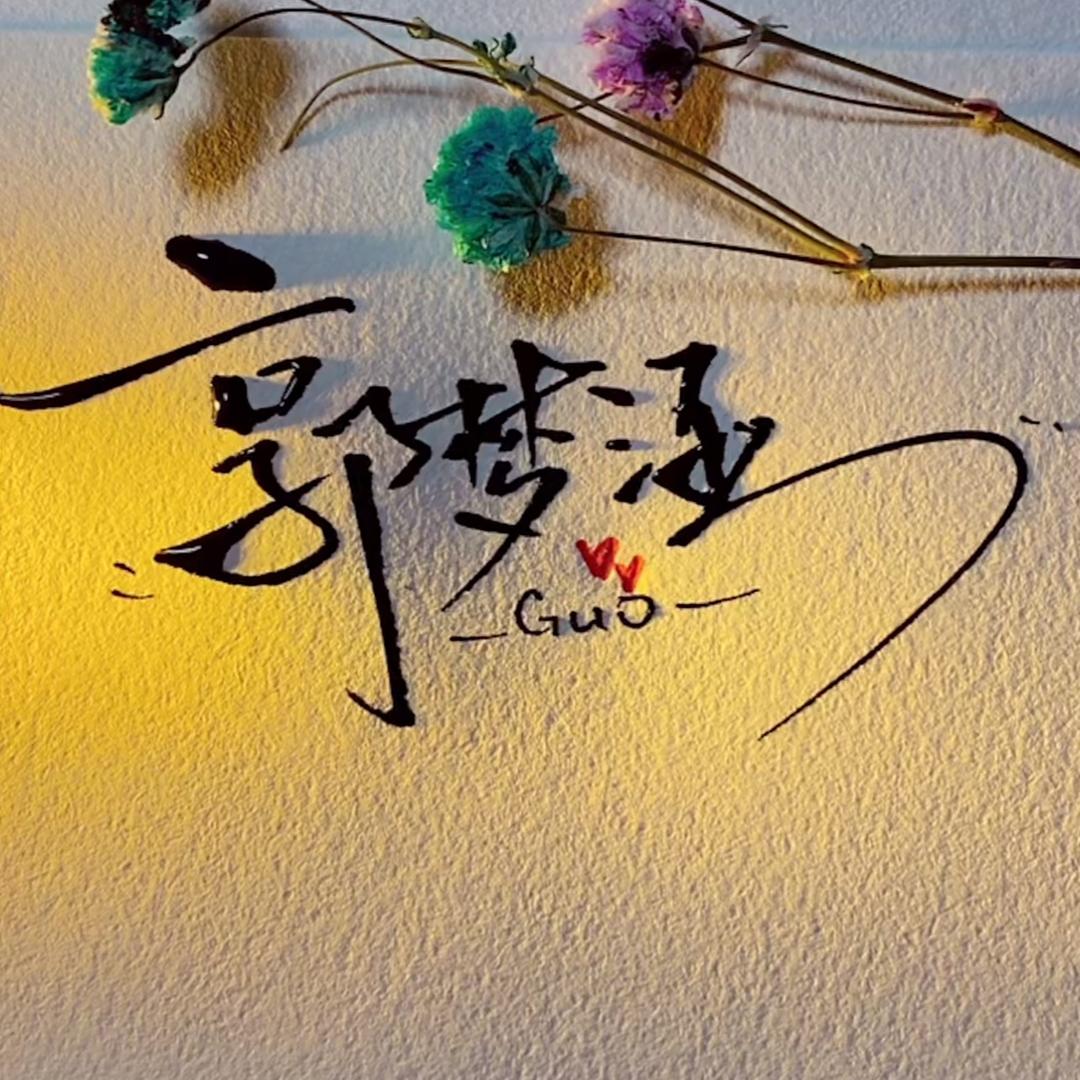 郭梦涵
Guo